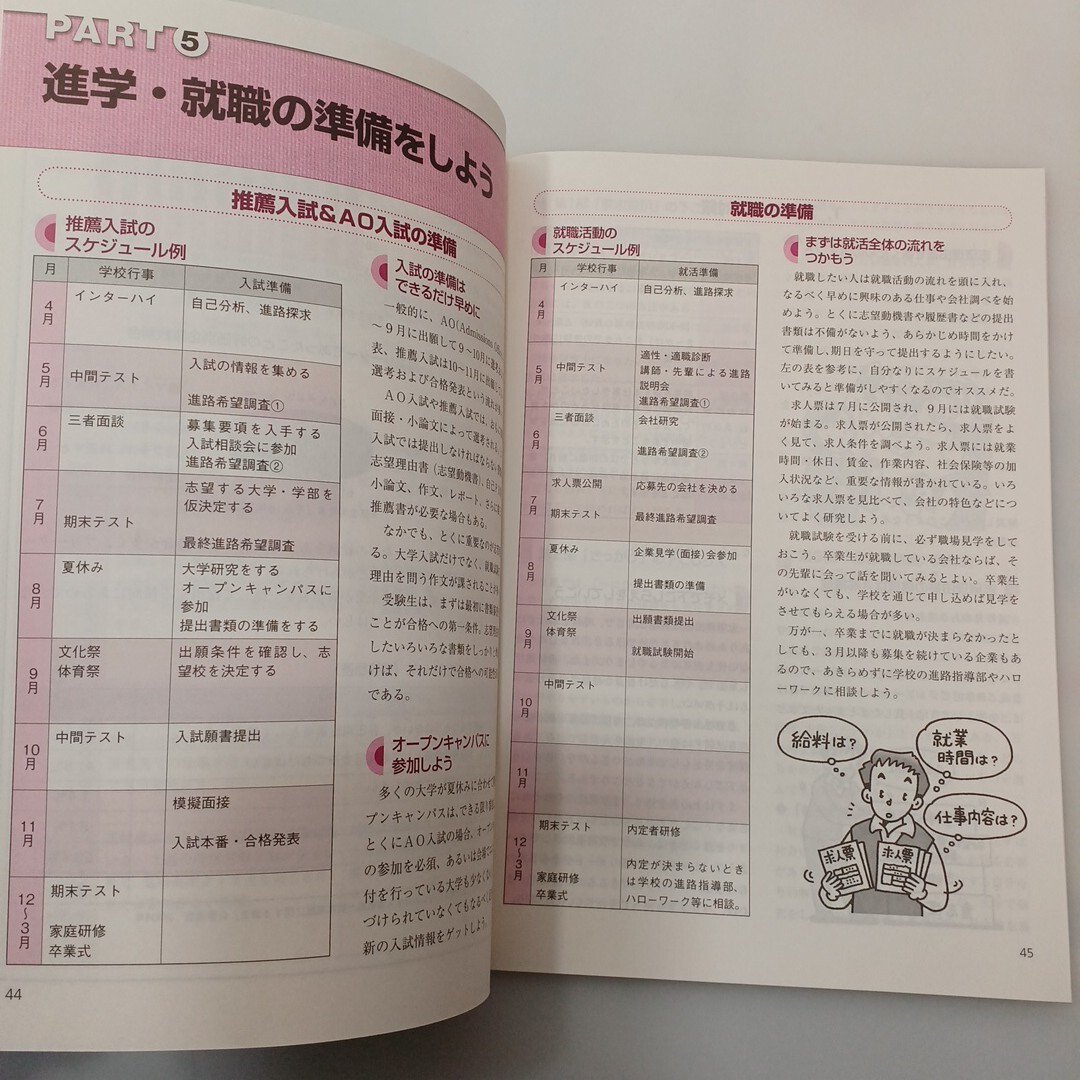 PART 5
進学・就職の準備をしよう
推薦入試&AO入試の準備
推薦入試の
スケジュール例
月 学校行事 入試準備
4月 インターハイ 自己分析、進路探求
5月 中間テスト 入試の情報を集める
進路希望調査①
6月 三者面談 募集要項を入手する
入試相談会に参加
進路希望調査②
7月 期末テスト 志望する大学・学部を
仮決定する
最終進路希望調査
8月 夏休み 大学研究をする
オープンキャンパスに
参加
提出書類の準備をする
9月 文化祭 出願条件を確認し、志
体育祭 望校を決定する
10月 中間テスト 入試願書提出
11月 模擬面接
入試本番・合格発表
12〜3月 期末テスト
家庭研修
卒業式
入試の準備は
できるだけ早めに
一般的に、AO(Admissions
〜9月に出願して9〜10月に
表、推薦入試は10〜11月に出願
選考および合格発表という流れ
AO入試や推薦入試では、
面接・小論文によって選考される。
入試では提出しなければならない
志望理由書(志望動機書)、自己
小論文、作文、レポート、さらに
推薦書が必要な場合もある。
なかでも、とくに重要なのが
る。大学入試だけでなく、就職
理由を問う作文が課されることが
受験生は、まずは最初に書類
ことが合格への第一条件。
したいろいろな書類をしっかり
けば、それだけで合格への可能
である。
オープンキャンパスに
参加しよう
多くの大学が夏休みに合わせ
プンキャンパスは、できる限り
とくにAO入試の場合、オープ
の参加を必須、あるいは会場で
付を行っている大学も少なくな
づけられていなくてもなるべく
新の入試情報をゲットしよう。
44
就職の準備
就職活動の
スケジュール例
月 学校行事 就活準備
4月 インターハイ 自己分析、進路探求
5月 中間テスト 適性・適職診断
講師・先輩による進路
説明会
進路希望調査①
6月 三者面談 会社研究
進路希望調査②
7月 求人票公開 応募先の会社を決める
期末テスト 最終進路希望調査
8月 夏休み 企業見学(面接)会参加
提出書類の準備
9月 文化祭 出願書類提出
体育祭
就職試験開始
10月 中間テスト
11月
12〜3月 期末テスト 内定者研修
家庭研修 内定が決まらないとき
卒業式 は学校の進路指導部、
ハローワーク等に相談。
まずは就活全体の流れを
つかもう
就職したい人は就職活動の流れを頭に入れ、
なるべく早めに興味のある仕事や会社調べを始
めよう。とくに志望動機書や履歴書などの提出
書類は不備がないよう、あらかじめ時間をかけ
て準備し、期日を守って提出するようにしたい。
左の表を参考に、自分なりにスケジュールを書
いてみると準備がしやすくなるのでオススメだ。
求人票は7月に公開され、9月には就職試験
が始まる。求人票が公開されたら、求人票をよ
く見て、求人条件を調べよう。求人票には就業
時間・休日、賃金、作業内容、社会保険等の加
入状況など、重要な情報が書かれている。いろ
いろな求人票を見比べて、会社の特色などにつ
いてよく研究しよう。
就職試験を受ける前に、必ず職場見学をして
おこう。卒業生が就職している会社ならば、そ
の先輩に会って話を聞いてみるとよい。卒業生
がいなくても、学校を通じて申し込めば見学を
させてもらえる場合が多い。
万が一、卒業までに就職が決まらなかったと
しても、3月以降も募集を続けている企業もあ
るので、あきらめずに学校の進路指導部やハロ
ーワークに相談しよう。
給料は?
就業
時間は?
仕事内容は?
求人票
求人票
45